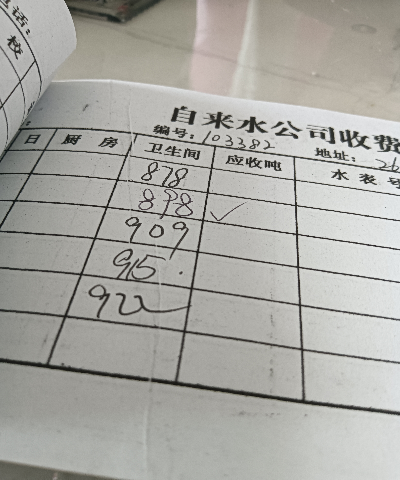 话:
校
自来水公司收费
编号: 103382 地址: 26
日 厨房 卫生间 应收吨 水表号
878
898 ✓
909
915.
922